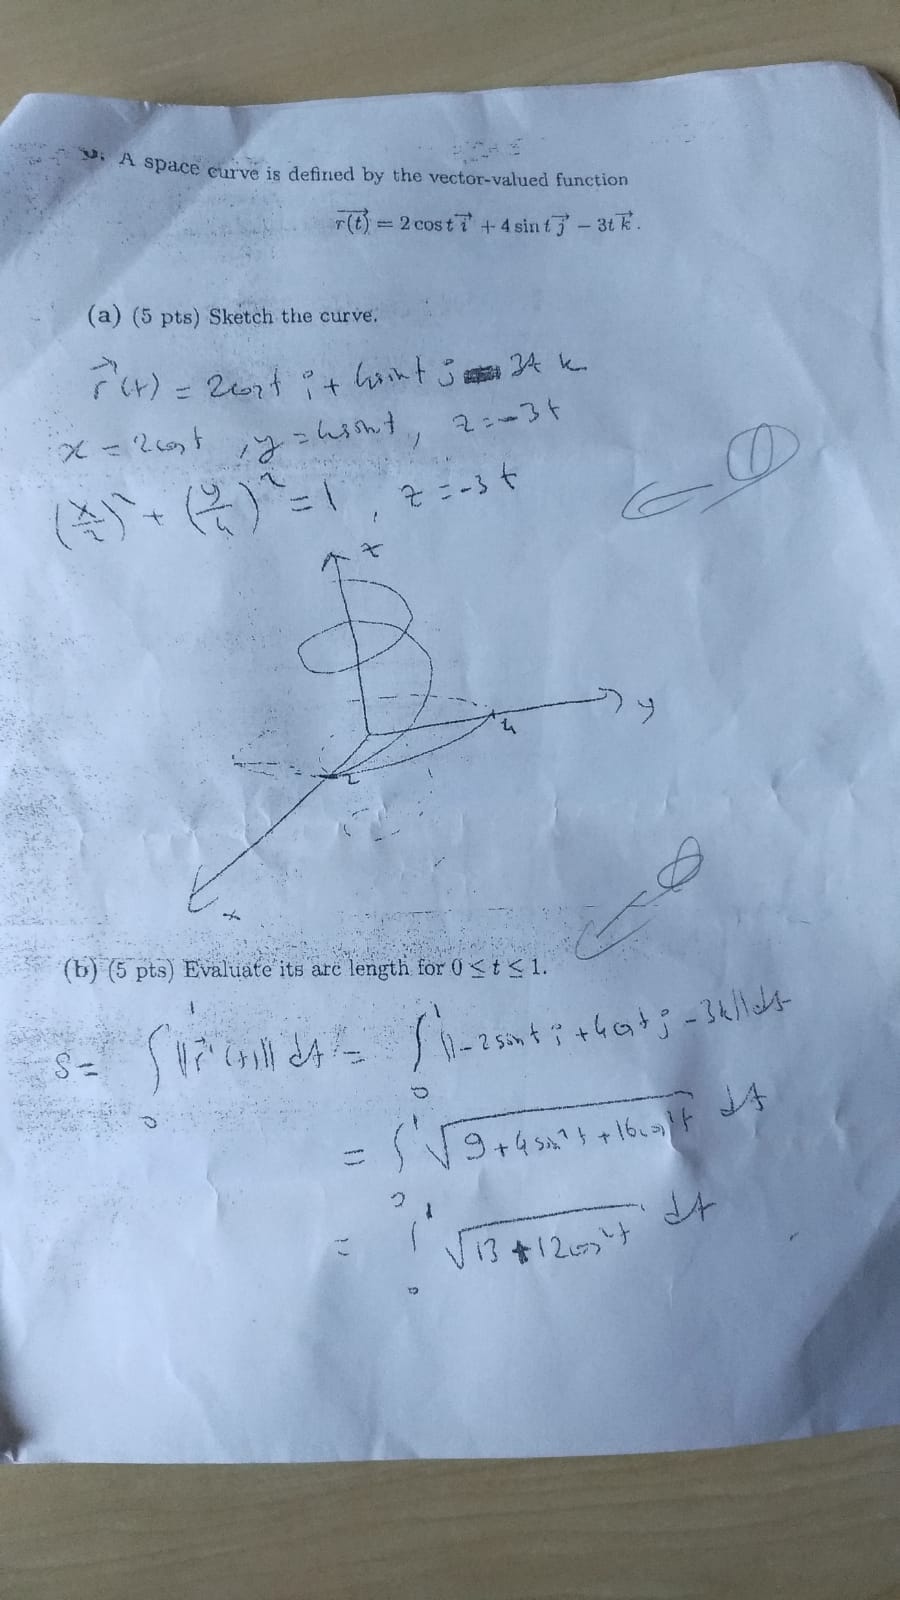 A space curve is defined by the vector-valued function
r(t) = 2 cos t i + 4 sin t j − 3t k.
(a) (5 pts) Sketch the curve.
r(t) = 2cost i + 4sint j 3t k
x = 2cost, y = 4sint, z = -3t
(x/2)² + (y/4)² = 1, z = -3t
z
y
4
2
x
(b) (5 pts) Evaluate its arc length for 0 ≤ t ≤ 1.
S = ∫₀¹ ||r'(t)|| dt = ∫₀¹ ||-2sint i + 4cost j - 3k|| dt
= ∫₀¹ √(9 + 4sin²t + 16cos²t) dt
= ∫₀¹ √(13 + 12cos²t) dt